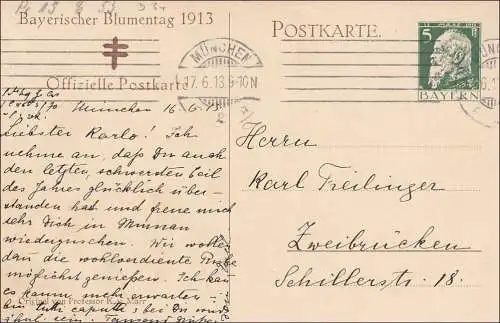 Bayerischer Blumentag 1913
POSTKARTE.
Offizielle Postkarte
MÜNCHEN
17.6.13.9-10N
5
BAYERN
München 16.6.13.
Liebster Karlo! Ich
nehme an, daß Du auch
den letzten, schwersten Teil
des Jahres glücklich über-
standen hast und freue mich
sehr Dich in
wiederzusehen. Wir wollen
dann die wohlverdiente Ruhe
möglichst genießen. Ich kann
es kaum mehr erwarten
bin total caputt
Tausend Grüße
Original von Professor R. v. Marr
Herrn
Karl Freilinger
Zweibrücken
Schillerstr. 18.